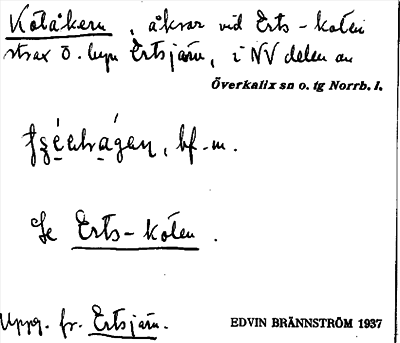 Kotåkern, åkrar vid Erts-koten
strax ö. byn Ertsjärn, i NV delen av
Överkalix sn o. tg Norrb. l.
bf. m.
Se Erts-koten.
Uppg. fr. Ertsjärn.
EDVIN BRÄNNSTRÖM 1937